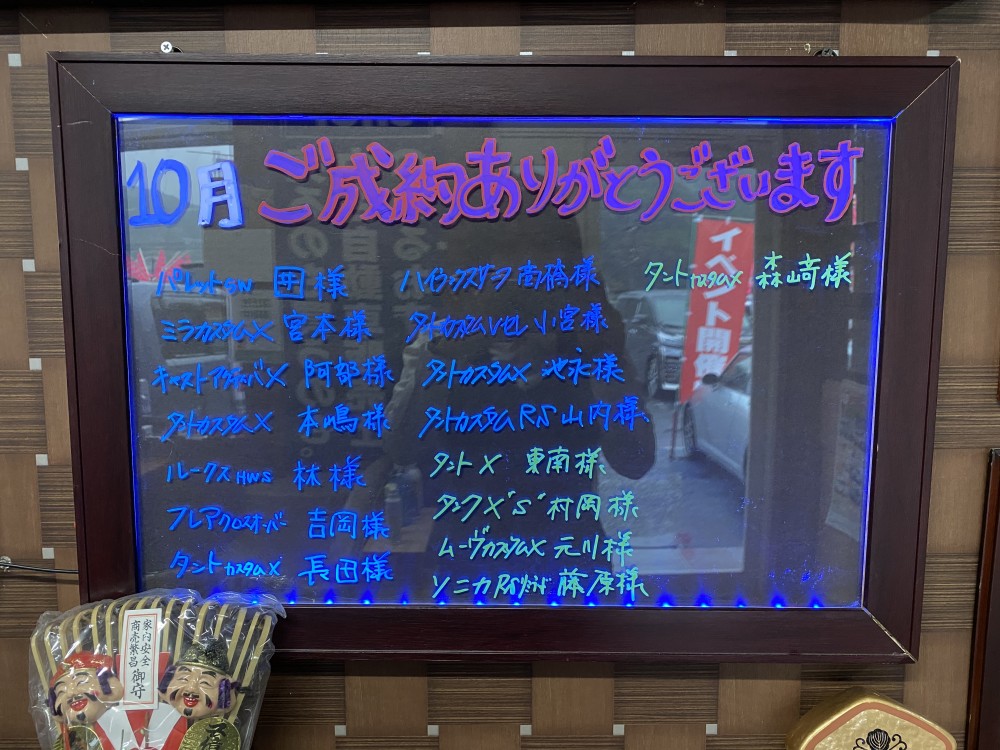 10月 ご成約ありがとうございます
パレットSW 囲様
ミラカスタムX 宮本様
キャストアクティバX 阿部様
タントカスタムX 本嶋様
ルークス HWS 林様
フレアクロスオーバー 吉岡様
タントカスタムX 長田様
南橋様
小宮様
タントカスタムX 池永様
タントカスタムRS 山内様
タントX 東南様
タンクX"S" 村岡様
ムーヴカスタムX 元川様
ソニカRS 藤原様
タントカスタムX 森崎様
イベント開催
家内安全
商売繁昌
御守